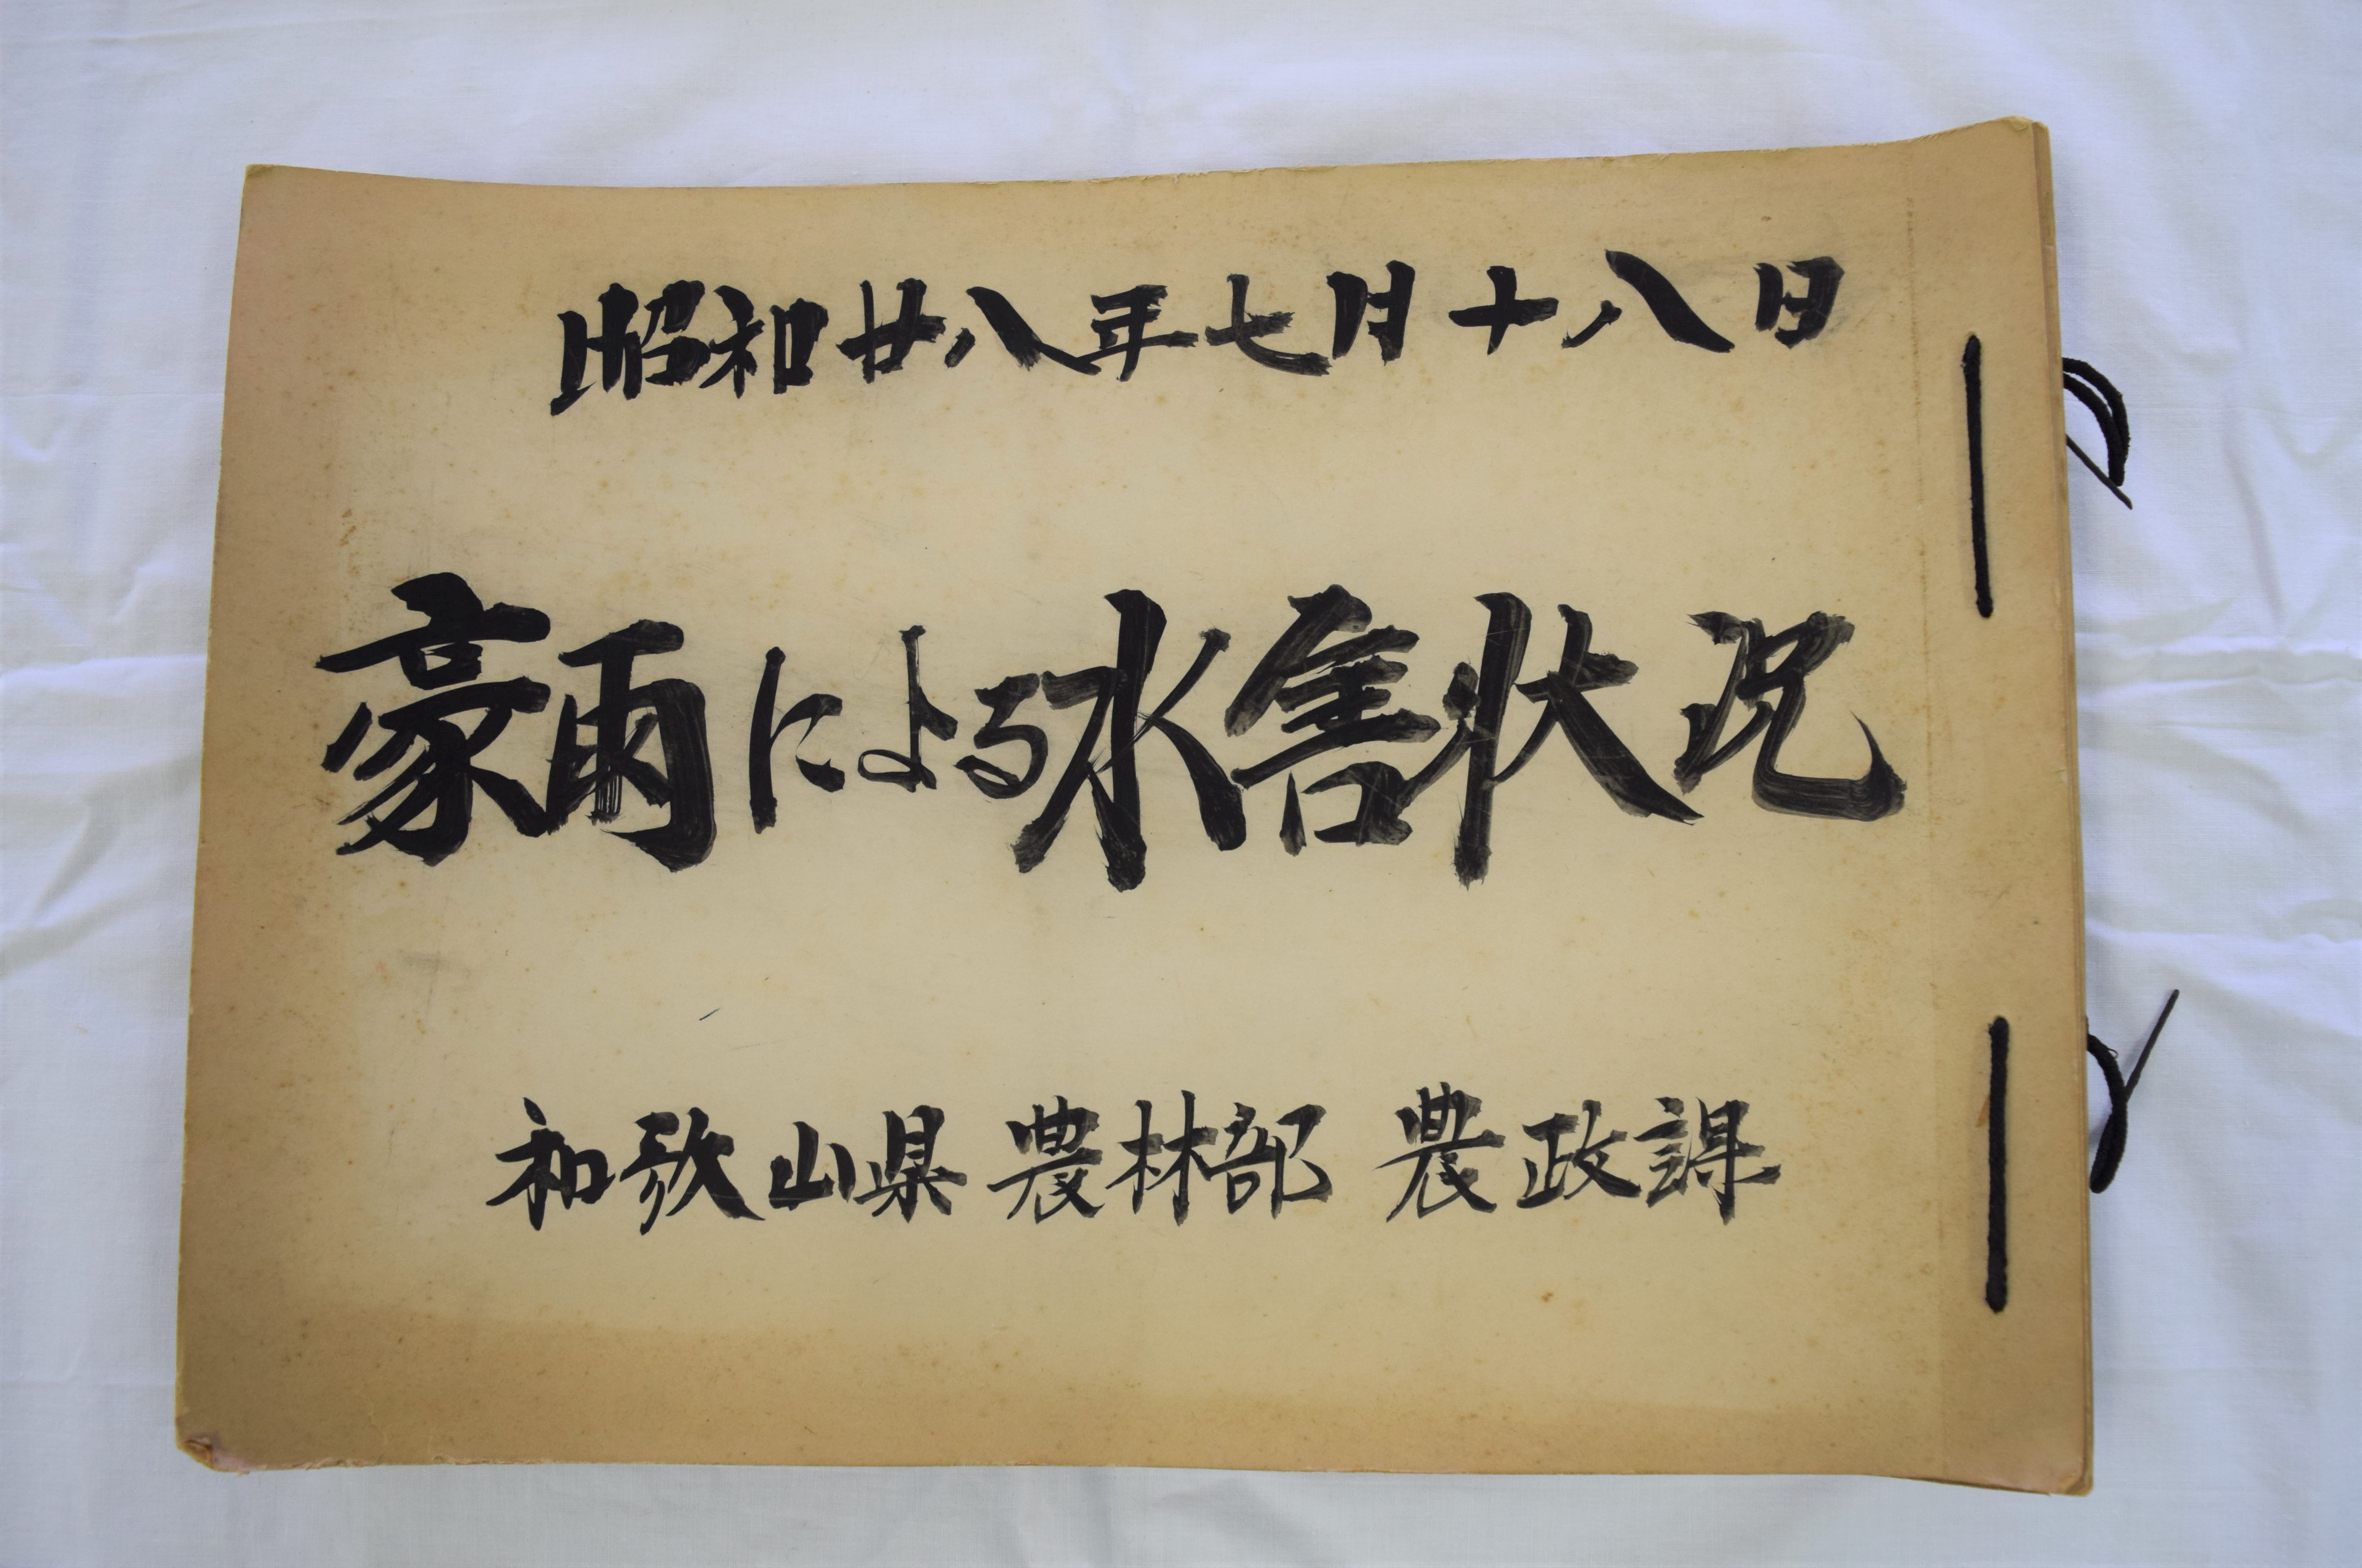 昭和廿八年七月十八日
豪雨による水害状况
和歌山県農林部 農政課